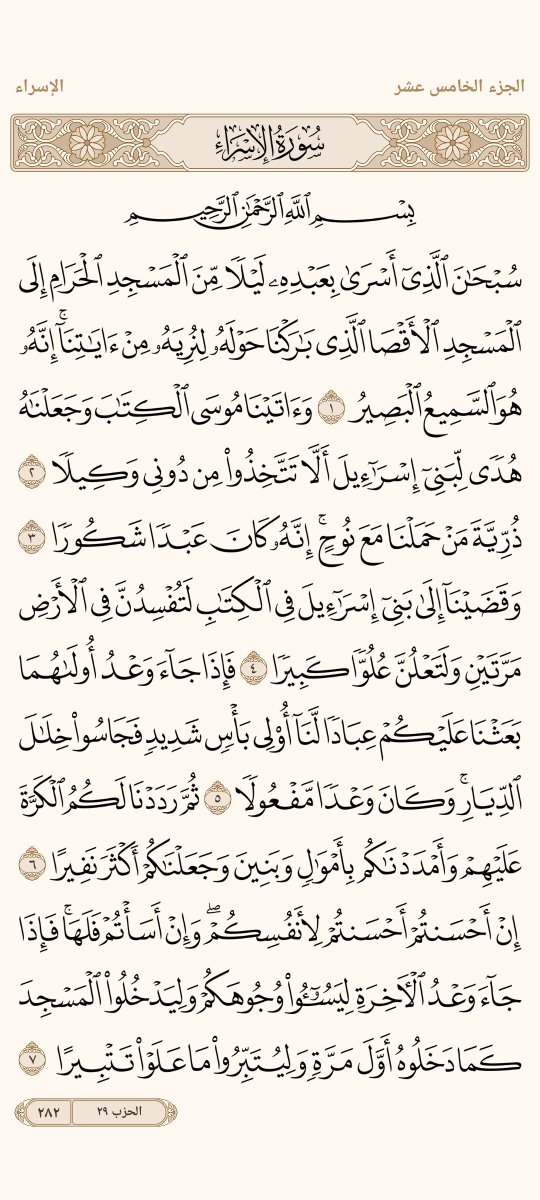 الجزء الخامس عشر
الإسراء
سُورَةُ الإِسْرَاءِ
بِسْمِ ٱللَّهِ ٱلرَّحْمَٰنِ ٱلرَّحِيمِ
سُبْحَٰنَ ٱلَّذِىٓ أَسْرَىٰ بِعَبْدِهِۦ لَيْلًا مِّنَ ٱلْمَسْجِدِ ٱلْحَرَامِ إِلَى
ٱلْمَسْجِدِ ٱلْأَقْصَا ٱلَّذِى بَٰرَكْنَا حَوْلَهُۥ لِنُرِيَهُۥ مِنْ ءَايَٰتِنَآ ۚ إِنَّهُۥ
هُوَ ٱلسَّمِيعُ ٱلْبَصِيرُ ١ وَءَاتَيْنَا مُوسَى ٱلْكِتَٰبَ وَجَعَلْنَٰهُ
هُدًى لِّبَنِىٓ إِسْرَٰٓءِيلَ أَلَّا تَتَّخِذُوا۟ مِن دُونِى وَكِيلًا ٢
ذُرِّيَّةَ مَنْ حَمَلْنَا مَعَ نُوحٍ ۚ إِنَّهُۥ كَانَ عَبْدًا شَكُورًا ٣
وَقَضَيْنَآ إِلَىٰ بَنِىٓ إِسْرَٰٓءِيلَ فِى ٱلْكِتَٰبِ لَتُفْسِدُنَّ فِى ٱلْأَرْضِ
مَرَّتَيْنِ وَلَتَعْلُنَّ عُلُوًّا كَبِيرًا ٤ فَإِذَا جَآءَ وَعْدُ أُولَىٰهُمَا
بَعَثْنَا عَلَيْكُمْ عِبَادًا لَّنَآ أُو۟لِى بَأْسٍ شَدِيدٍ فَجَاسُوا۟ خِلَٰلَ
ٱلدِّيَارِ ۚ وَكَانَ وَعْدًا مَّفْعُولًا ٥ ثُمَّ رَدَدْنَا لَكُمُ ٱلْكَرَّةَ
عَلَيْهِمْ وَأَمْدَدْنَٰكُم بِأَمْوَٰلٍ وَبَنِينَ وَجَعَلْنَٰكُمْ أَكْثَرَ نَفِيرًا ٦
إِنْ أَحْسَنتُمْ أَحْسَنتُمْ لِأَنفُسِكُمْ ۖ وَإِنْ أَسَأْتُمْ فَلَهَا ۚ فَإِذَا
جَآءَ وَعْدُ ٱلْءَاخِرَةِ لِيَسُۥٓـُٔوا۟ وُجُوهَكُمْ وَلِيَدْخُلُوا۟ ٱلْمَسْجِدَ
كَمَا دَخَلُوهُ أَوَّلَ مَرَّةٍ وَلِيُتَبِّرُوا۟ مَا عَلَوْا۟ تَتْبِيرًا ٧
الحزب ٢٩
٢٨٢